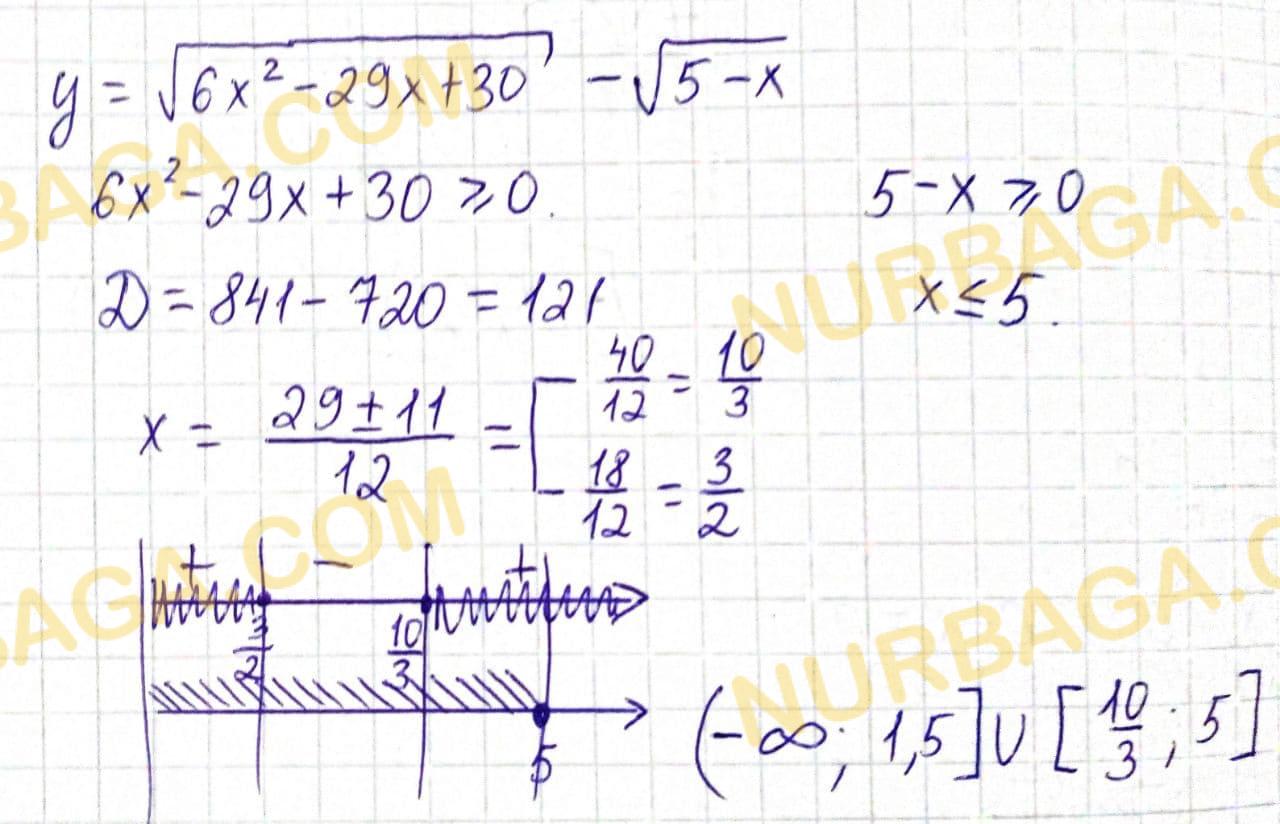 y = √(6x² - 29x + 30) - √(5 - x)
6x² - 29x + 30 ⩾ 0.
5 - x ⩾ 0
D = 841 - 720 = 121
x ≤ 5.
x = (29 ± 11)/12 = [ 40/12 = 10/3
18/12 = 3/2
+ - +
3/2 10/3
5
(-∞; 1,5] ∪ [10/3; 5]
NURBAGA.COM
NURBAGA.COM
NURBAGA.COM
NURBAGA.COM